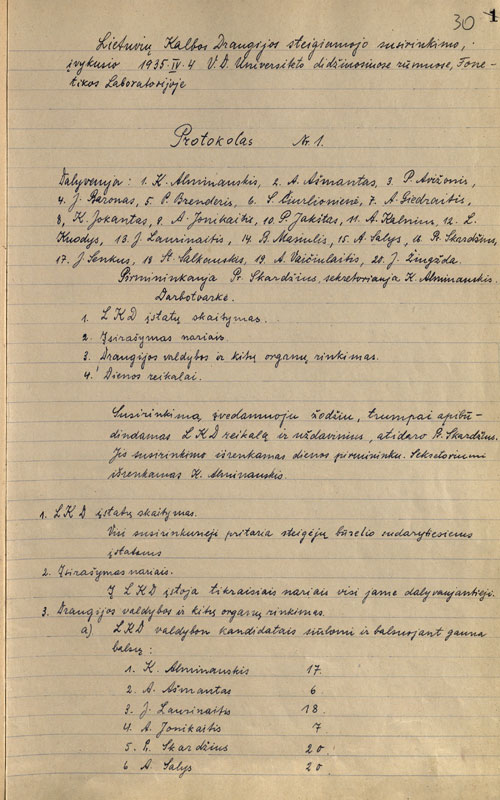 30 1
Lietuvių Kalbos Draugijos steigiamojo susirinkimo,
įvykusio 1935.IV.4 V.D. Universiteto didžiuosiuose rūmuose, Fone-
tikos Laboratorijoje
Protokolas Nr 1.
Dalyvauja: 1. K. Alminauskis, 2. A. Ašmantas, 3. P. Avižonis,
4. J. Baronas, 5. P. Brenderis, 6. S. Čiurlionienė, 7. A. Giedraitis,
8, K. Jokantas, 9. A. Jonikaitis, 10. P. Jakštas, 11. A. Kalnius, 12. L.
Kuodys, 13. J. Laurinaitis, 14. B. Masiulis, 15. A. Salys, 16 Pr. Skardžius,
17. J. Senkus, 18 St. Šalkauskis, 19. A. Vaičiulaitis, 20. J. Žiugžda.
Pirmininkauja Pr. Skardžius, sekretoriauja K. Alminauskis.
Darbotvarkė.
1. LKD įstatų skaitymas.
2. Įsirašymas nariais.
3. Draugijos valdybos ir kitų organų rinkimas.
4. Dienos reikalai.
Susirinkimą įvedamuoju žodžiu, trumpai apibū-
dindamas LKD reikalą ir uždavinius, atidaro P. Skardžius.
Jis susirinkimo išrenkamas dienos pirmininku. Sekretoriumi
išrenkamas K. Alminauskis.
1. LKD įstatų skaitymas.
Visi susirinkusieji pritaria steigėjų būrelio sudarytiesiems
įstatams
2. Įsirašymas nariais.
Į LKD įstoja tikraisiais nariais visi jame dalyvaujantieji.
3. Draugijos valdybos ir kitų organų rinkimas.
a) LKD valdybon kandidatais siūlomi ir balsuojant gauna
balsų:
1. K. Alminauskis 17.
2. A. Ašmantas 6.
3. J. Laurinaitis 18.
4. A. Jonikaitis 7
5. P. Skardžius 20
6 A. Salys 20